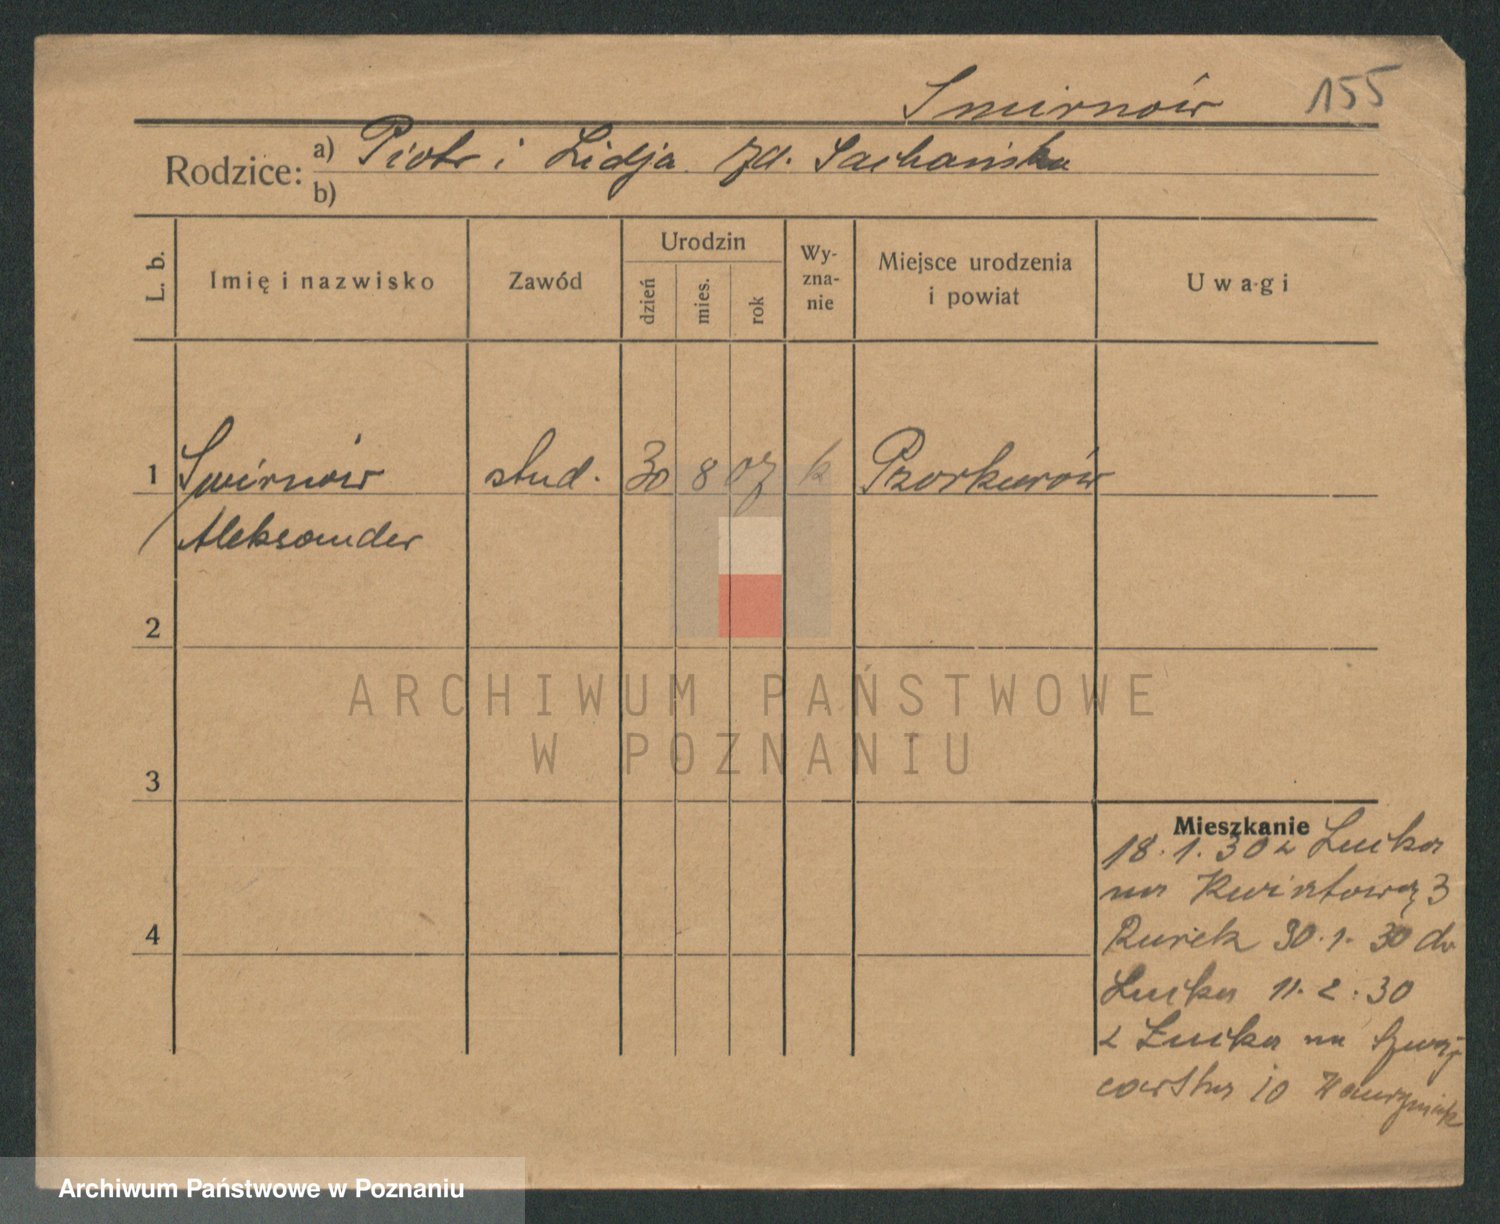 Smirnów 155
Rodzice: a) Piotr i Lidja zd. Sachańska
b)
L. b.
Imię i nazwisko
Zawód
Urodzin
dzień
mies.
rok
Wy-
zna-
nie
Miejsce urodzenia
i powiat
Uwagi
1 Smirnów stud. 30 8 07 k
Aleksander
2
3
4
Mieszkanie
18.1.30 z Łucka
na Kwiatową 3
30.1.30 do
Łucka 11.2.30
z Łucka na Szwaj
carska 10
ARCHIWUM PAŃSTWOWE
W POZNANIU
Archiwum Państwowe w Poznaniu